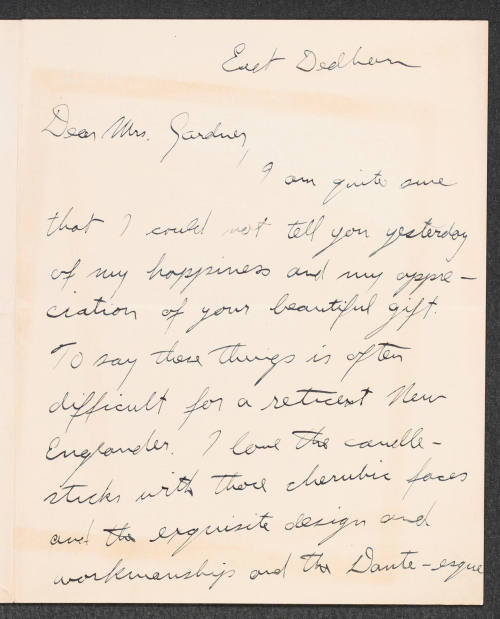 East Dedham
Dear Mrs. Gardner,
I am quite sure
that I could not tell you yesterday
of my happiness and my appre-
ciation of your beautiful gift.
To say these things is often
difficult for a reticent New
Englander. I love the candle-
sticks with those cherubic faces
and the exquisite design and
workmanship and the Dante-esque